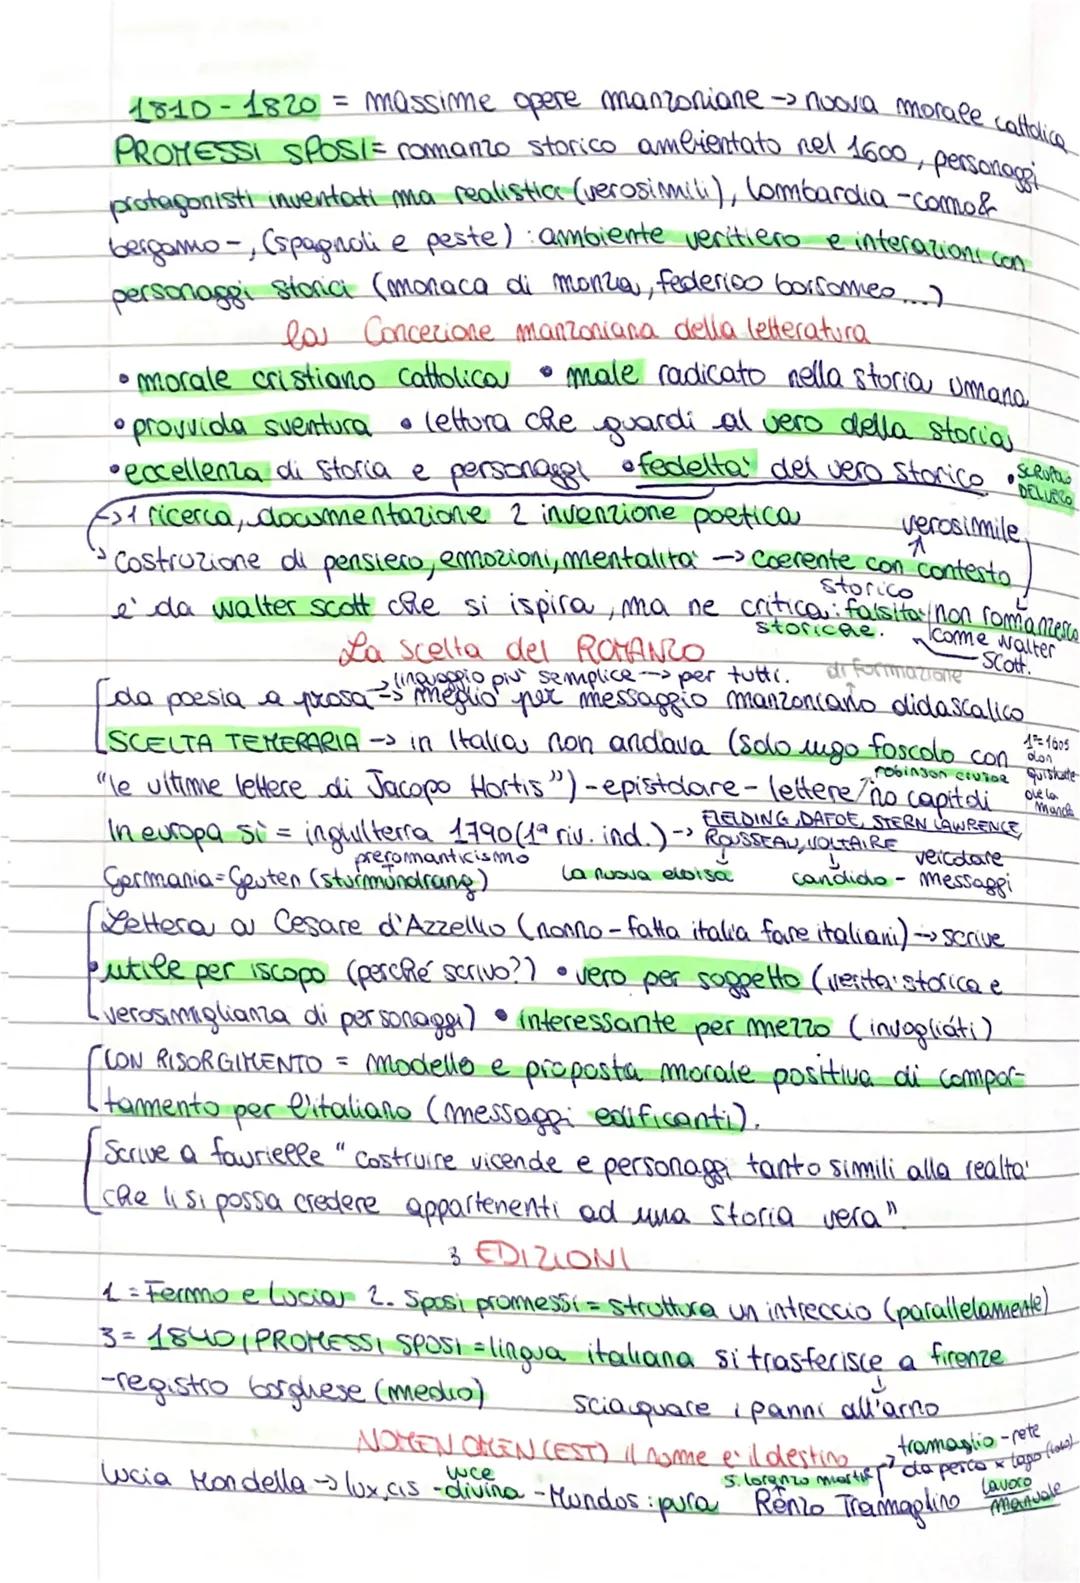 1810-1820 = massime opere manzoniane -> nuova morale cattolica
PROMESSI SPOSI = romanzo storico ambientato nel 1600, personaggi
protagonisti inventati ma realistici (verosimili), lombardia - como &
bergamo -, (spagnoli e peste) : ambiente veritiero e interazioni con
personaggi storici (monaca di monza, federico borromeo ...)
la Concezione manzoniana della letteratura
• morale cristiano cattolica • male radicato nella storia umana
• provvida sventura • lettura che guardi al vero della storia
• eccellenza di storia e personaggi • fedelta' del vero storico •
DEL VERO
-> 1 ricerca, documentazione 2 invenzione poetica verosimile
-> Costruzione di pensiero, emozioni, mentalita' -> coerente con contesto
storico
e' da walter scott che si ispira, ma ne critica: falsita' / non romanzesco
storiche. come walter
Scott.
La scelta del ROMANZO
-> linguaggio piu' semplice -> per tutti. di formazione
da poesia a prosa -> meglio per messaggio manzoniano didascalico
SCELTA TEMERARIA -> in Italia non andava (solo ugo foscolo con
1°=1605
don
quishotte
de la
mancha
robinson crusoe
"le ultime lettere di Jacopo Hortis") - epistolare - lettere / no capitoli
FIELDING, DAFOE, STERN LAWRENCE,
In europa si = inghilterra 1790 (1ª riv. ind.) -> ROUSSEAU, VOLTAIRE
preromanticismo veicolare
Germania = Geuten (sturmundrang) la nuova eloisa candido - messaggi
Lettera a Cesare d'Azzellio (nonno - fatta italia fare italiani) -> scrive
• utile per iscopo (perché scrivo?) • vero per soggetto (verita' storica e
verosimiglianza di personaggi) • interessante per mezzo (invogliáti)
CON RISORGIMENTO = modello e proposta morale positiva di compor-
tamento per l'italiano (messaggi edificanti).
Scrive a faurielle "costruire vicende e personaggi tanto simili alla realta'
che li si possa credere appartenenti ad una storia vera".
3 EDIZIONI
1 = Fermo e Lucia 2. Sposi promessi = struttura un intreccio (parallelamente)
3 = 1840, PROMESSI SPOSI = lingua italiana si trasferisce a firenze
- registro borghese (medio) sciacquare i panni all'arno
NOMEN OMEN (EST) il nome e' il destino
tramaglio - rete
da pesca x lago
luce S. lorenzo martire lavoro
Lucia Mondella -> lux, cis - divina - Mundos : pura Renzo Tramaglino manuale